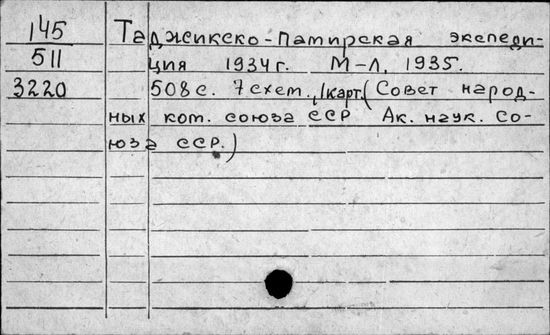 145 Таджикско-Памирская экспеди-
511 ция 1934г. М-Л, 1935.
3220 508с. 7схем., 1карт. (Совет народ-
ных ком. союза ССР Ак. наук. Со-
юза ССР.)